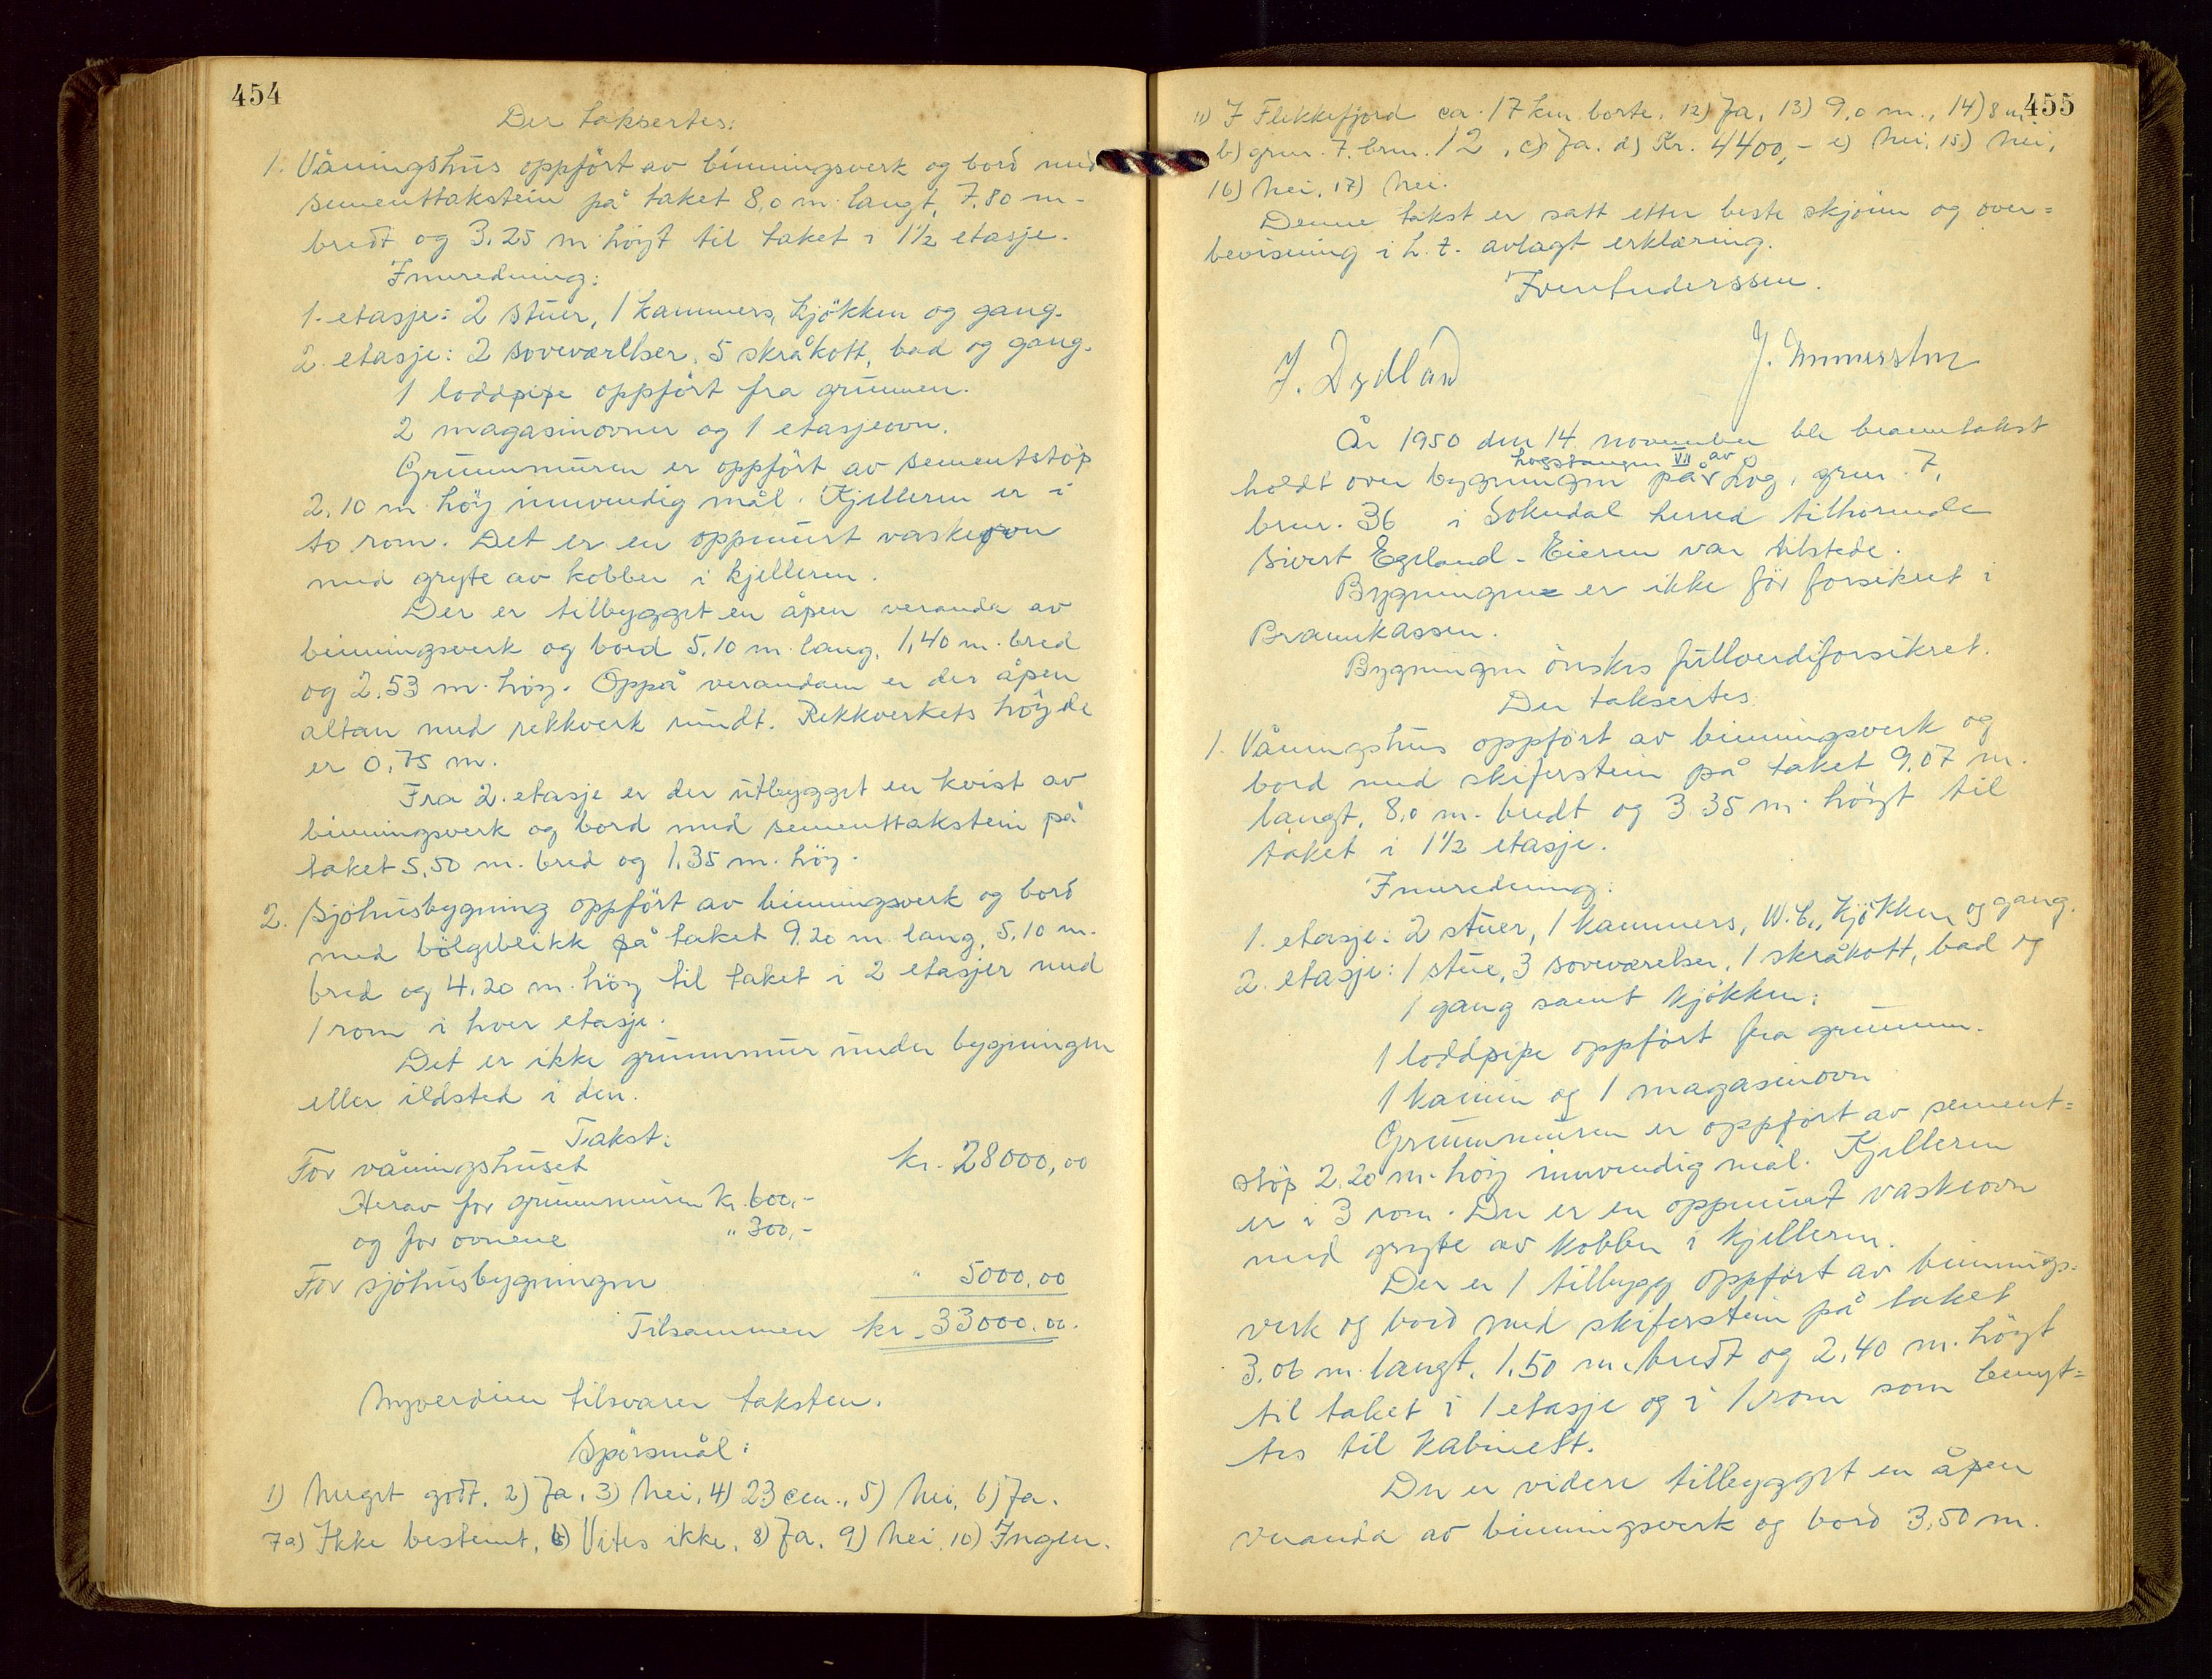 454
Der taksertes:
1. Våningshus oppført av binningsverk og bord med
sementtakstein på taket 8,0 m. langt, 7,80 m.
bredt og 3,25 m. høyt til taket i 1½ etasje.
Innredning:
1. etasje: 2 stuer, 1 kammers, kjøkken og gang.
2. etasje: 2 soveværelser, 5 skråkott, bad og gang.
1 loddpipe oppført fra grunnen.
2 magasinovner og 1 etasjeovn.
Grunnmuren er oppført av sementstøp
2,10 m høy innvendig mål. Kjelleren er i
to rom. Det er en oppmurt vaskeovn
med gryte av kobber i kjelleren.
Der er tilbygget en åpen veranda av
binningsverk og bord 5,10 m. lang, 1,40 m. bred
og 2,53 m. høy. Oppå verandaen er der åpen
altan med rekkverk rundt. Rekkverkets høyde
er 0,75 m.
Fra 2. etasje er der utbygget en kvist av
binningsverk og bord med sementtakstein på
taket 5,50 m. bred og 1,35 m. høy.
2. Sjøhusbygning oppført av binningsverk og bord
med bølgeblikk på taket 9,20 m lang, 5,10 m.
bred og 4,20 m. høy til taket i 2 etasjer med
1 rom i hver etasje.
Det er ikke grunnmur under bygningen
eller ildsted i den.
Takst:
For våningshuset kr. 28000,00
Herav for grunnmuren kr. 600,-
og for ovnene " 300,-
For sjøhusbygningen " 5000,00
Tilsammen kr. 33000,00.
Nyverdien tilsvarer taksten.
Spørsmål:
1) Meget godt, 2) Ja, 3) Nei, 4) 23 cm., 5) Nei, 6) Ja.
7a) Ikke bestemt, b) Vites ikke, 8) Ja, 9) Nei, 10) Ingen.
455
11) I Flekkefjord ca. 17 km. borte, 12) Ja, 13) 9,0 m., 14) 8 m.
b) grnr. 7. brnr. 12, c) Ja. d) Kr. 4400,- e) Nei, 15) Nei,
16) Nei, 17) Nei.
Denne takst er satt etter beste skjønn og over=
bevisning i h. t. avlagt erklæring.
J. Dydland
År 1950 den 14. november ble branntakst
holdt over bygningen på VII av Log, grnr. 7,
brnr. 36 i Sokndal herred tilhørende
Sivert Egeland. Eieren var tilstede.
Bygningene er ikke før forsikret i
Brannkassen.
Bygningen ønskes fullverdiforsikret.
Der taksertes:
1. Våningshus oppført av binningsverk og
bord med skiferstein på taket 9,07 m.
langt, 8,0 m. bredt og 3 35 m. høyt til
taket i 1½ etasje.
Innredning:
1. etasje: 2 stuer, 1 kammers, W.C., kjøkken og gang.
2. etasje: 1 stue, 3 soveværelser, 1 skråkott, bad og
1 gang samt kjøkken.
1 loddpipe oppført fra grunnen.
1 kamin og 1 magasinovn
Grunnmuren er oppført av sement=
støp 2,20 m. høy innvendig mål. Kjelleren
er i 3 rom. Der er en oppmurt vaskeovn
med gryte av kobber i kjelleren.
Der er 1 tilbygg oppført av binnings=
verk og bord med skiferstein på taket
3,06 m. langt, 1,50 m. bredt og 2,40 m. høyt
til taket i 1 etasje og i 1 rom som benyt=
tes til kabinett.
Der er videre tilbygget en åpen
veranda av binningsverk og bord 3,50 m.